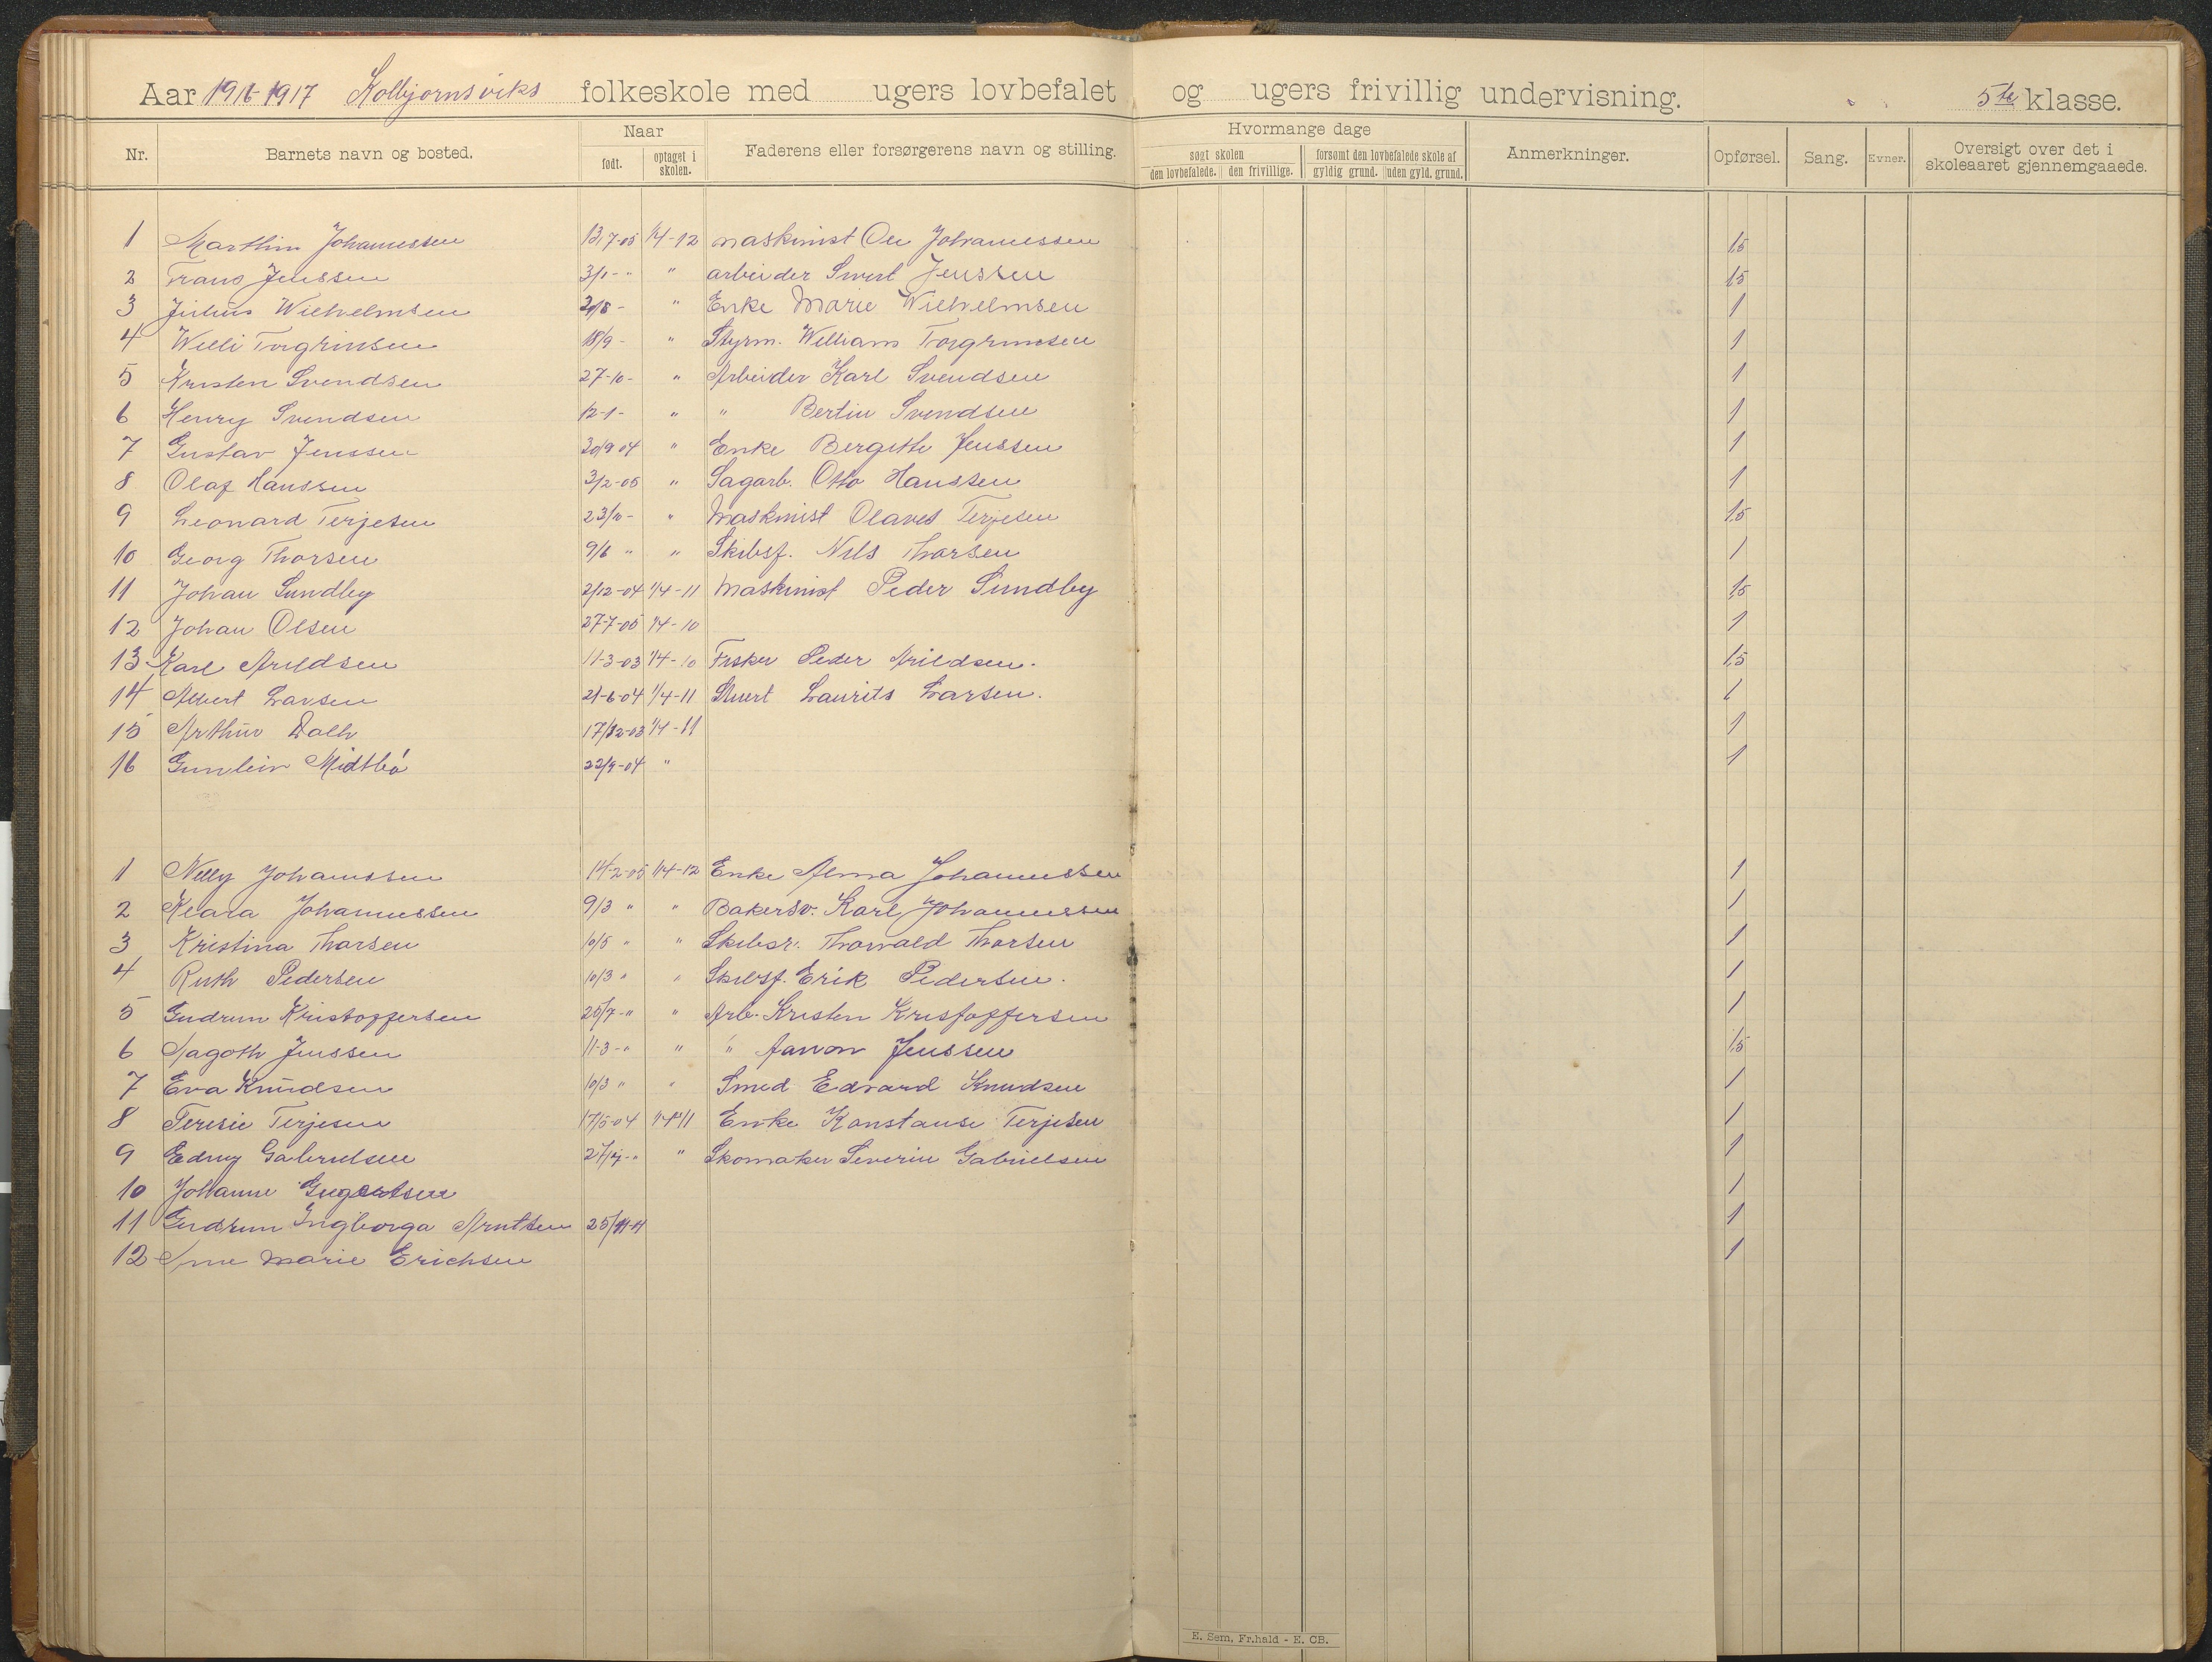 Aar 1916-1917 Kolbjornsviks folkeskole med ugers lovbefalet og ugers frivillig undervisning. 5te klasse.
Nr. Barnets navn og bosted. Naar Faderens eller forsørgerens navn og stilling. Hvormange dage Anmerkninger. Opførsel. Sang. Evner. Oversigt over det i skoleaaret gjennemgaaede.
født. optaget i skolen. søgt skolen forsømt den lovbefalede skole af
den lovbefalede. den frivillige. gyldig grund. uden gyld. grund.
1 Marthin Johannessen 13/7-05 1/4-12 maskinist Ole Johannessen 1,5
2 Frans Jenssen 3/1-" " arbeider Jenssen 1,5
3 Julius Wilhelmsen 2/8- " Enke Marie Wilhelmsen 1
4 Willi Torgrimsen 18/9- " Styrm. William Torgrimsen 1
5 Kristen Svendsen 27-10- " Arbeider Karl Svendsen 1
6 Henry Svendsen 12-1- " " Bertin Svendsen 1
7 Gustav Jenssen 30/9 04 " Enke Bergithe Jenssen 1
8 Olaf Hanssen 3/2-05 " Sagarb. Otto Hanssen 1
9 Leonard Terjesen 23/10- " Maskinist Olaves Terjesen 1,5
10 Georg Thorsen 9/6 " " Skibsf. Nils Thorsen 1
11 Johan Sundby 2/12-04 1/4-11 Maskinist Peder Sundby 1,5
12 Johan Olsen 27-7-05 1/4-10 1
13 Karl Arildsen 11-3-03 1/4-10 Fisker Peder Arildsen. 1,5
14 Albert Larsen 21-6-04 1/4-11 Stuert Laurits Larsen. 1
15 Arthur Dalh 17/12-03 1/4-11 1
16 Gunlein Midtbø 22/9-04 " 1
1 Nelly Johanssen 14-2-05 1/4-12 Enke Alma Johannessen 1
2 Klara Johannessen 9/3 " " Bakersv. Karl Johannessen 1
3 Kristina Thorsen 10/5 " " Skibsr. Thorvald Thorsen 1
4 Ruth Pedersen 10/3 " " Skibsf. Erik Pedersen. 1
5 Gudrun Kristoffersen 25/7-" " Arb. Kristen Kristoffersen 1
6 Dagoth Jenssen 11-3-" " " Aanon Jenssen 1,5
7 Eva Knudsen 10/3 " " Smed Edvard Knudsen 1
8 Teresie Terjesen 17/5-04 1/4-11 Enke Konstanse Terjesen 1
9 Edny Gabrielsen " Skomaker Severin Gabrielsen 1
10 Johanne 1
11 Gudrun Ingborga Arntsen 1
12 Ane Marie Erichsen 1
E. Sem, Fr.hald - E. CB.